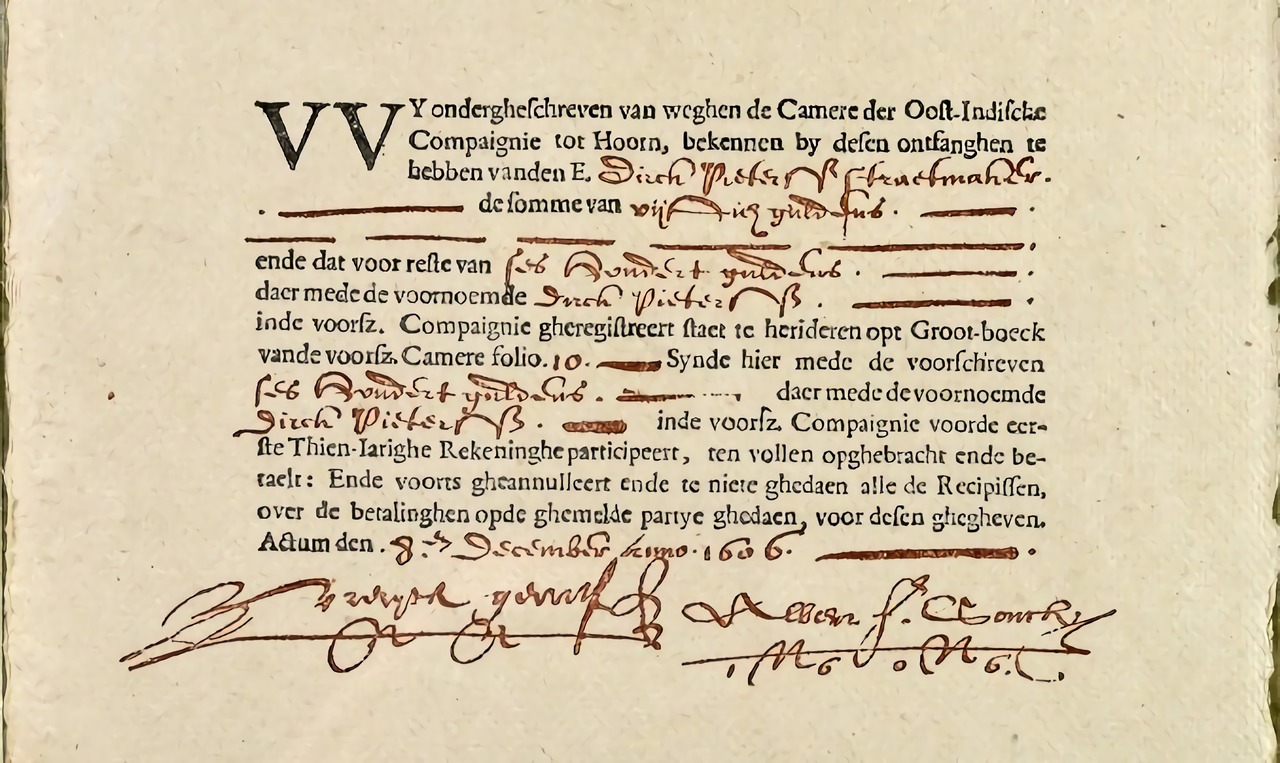 VVY ondergheſchreven van weghen de Camere der Ooſt-Indiſche
Compaignie tot Hoorn, bekennen by deſen ontfanghen te
hebben vanden E. Dirck Pietersſ ſtraetmaker.
de ſomme van vijftich guldens.
ende dat voor reſte van ſes hondert guldens.
daer mede de voornoemde Dirck Pietersſ.
inde voorſz. Compaignie gheregiſtreert ſtaet te herideren opt Groot-boeck
vande voorſz. Camere folio. 10. Synde hier mede de voorſchreven
ſes hondert guldens. daer mede de voornoemde
Dirck Pietersſ. inde voorſz. Compaignie voorde eer-
ſte Thien-Iarighe Rekeninghe participeert, ten vollen opghebracht ende be-
taelt: Ende voorts gheannulleert ende te niete ghedaen alle de Recipiſſen,
over de betalinghen opde ghemelde partye ghedaen, voor deſen ghegheven.
Actum den. 9. December Anno. 1606.